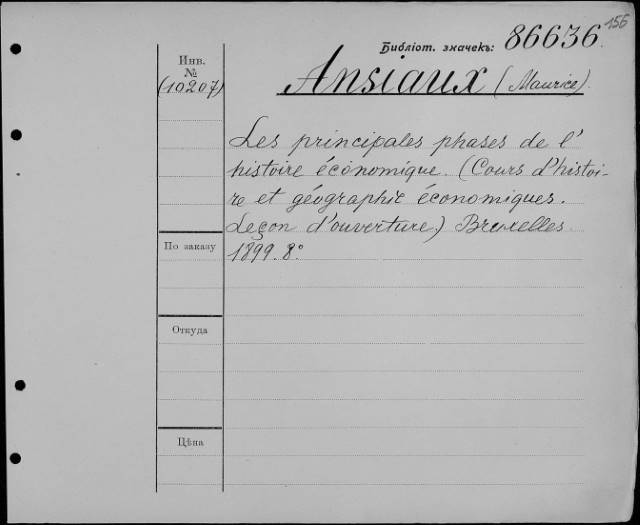 156
Библіот. значекъ: 86636.
Инв.
№
(10207)
Ansiaux (Maurice).
Les principales phases de l'
histoire économique. (Cours d'histoi-
re et géographie économiques.
Leçon d'ouverture.) Bruxelles.
1899. 8.°
По заказу
Откуда
Цѣна